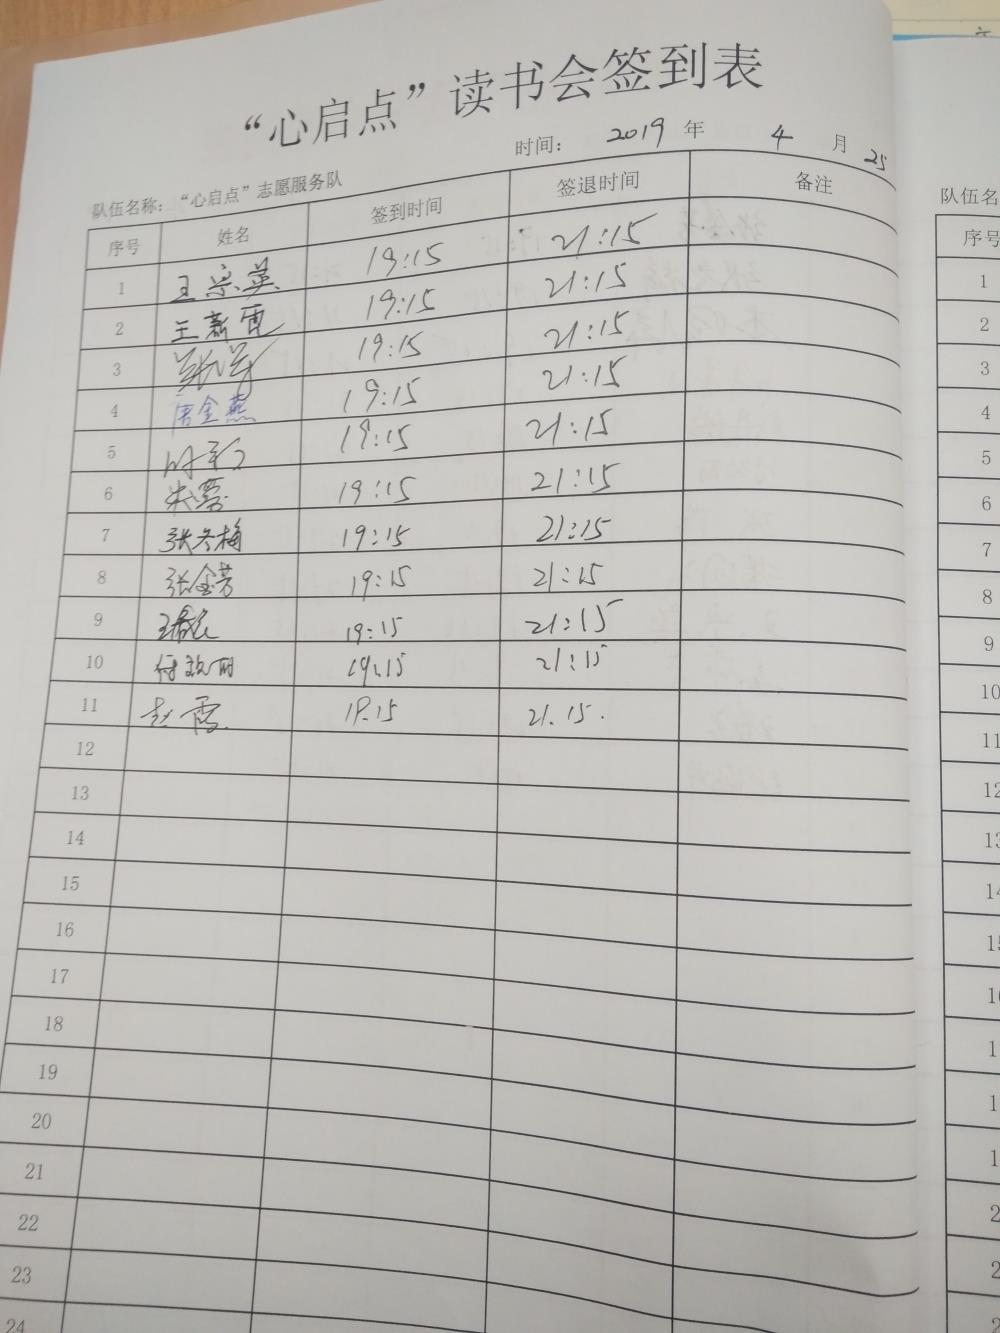 “心启点”读书会签到表
时间: 2019 年 4 月 25
队伍名称: “心启点”志愿服务队
序号 姓名 签到时间 签退时间 备注
1 王宗英 19:15 21:15
2 王新霞 19:15 21:15
3 19:15 21:15
4 唐金燕 19:15 21:15
5 19:15 21:15
6 朱 19:15 21:15
7 张冬梅 19:15 21:15
8 张金芳 19:15 21:15
9 王 19:15 21:15
10 付 19:15 21:15
11 赵霞 19.15 21.15.
12
13
14
15
16
17
18
19
20
21
22
23
24
队伍名
序号
1
2
3
4
5
6
7
8
9
10
11
12